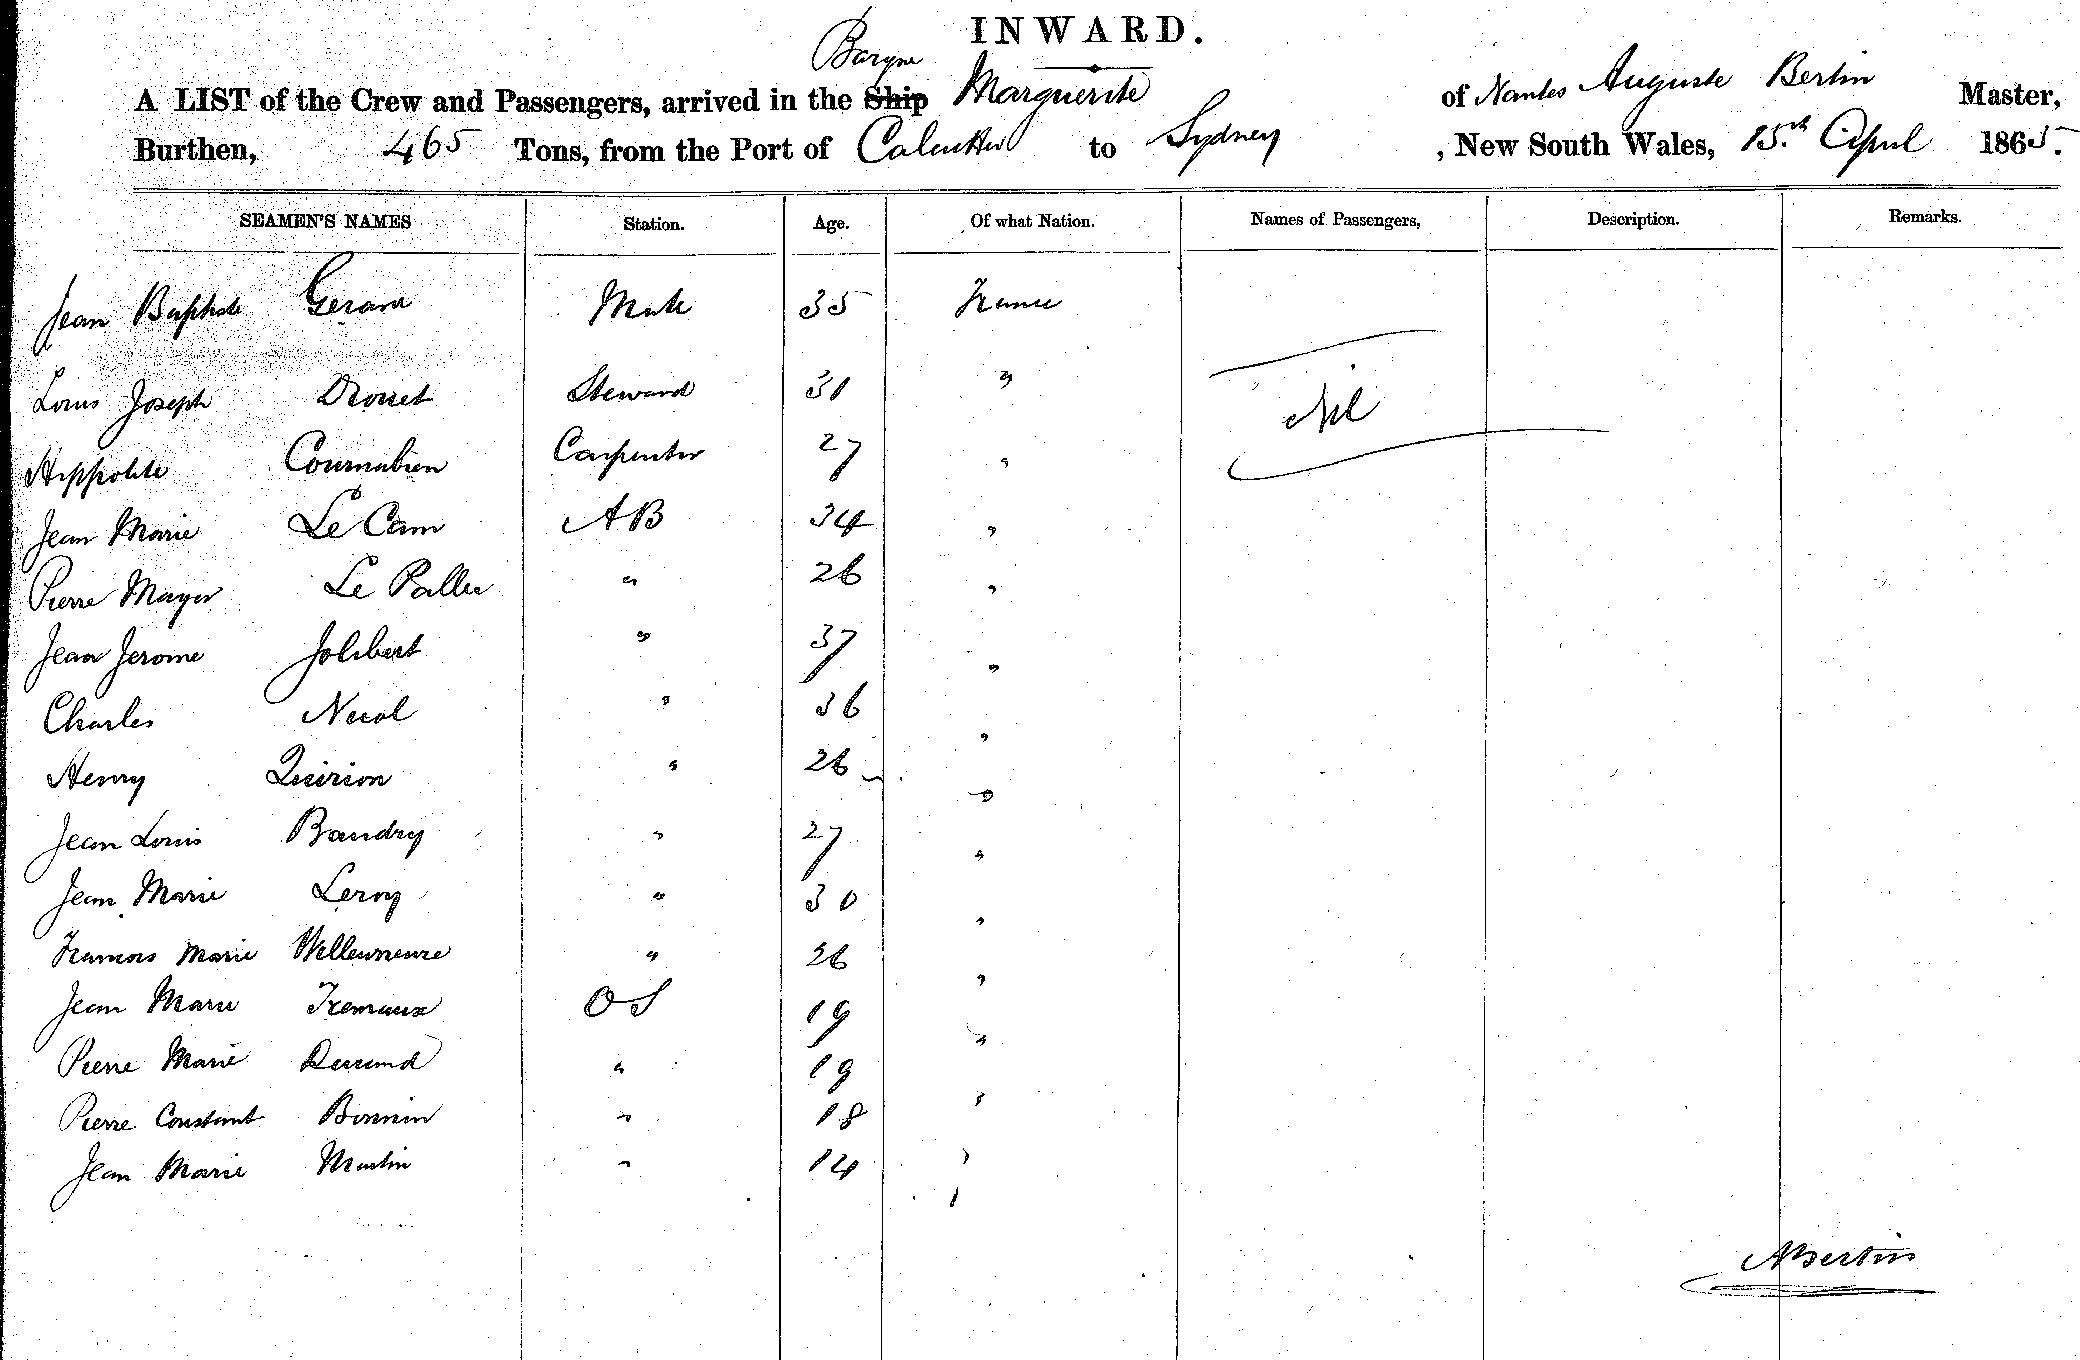 INWARD.
Barque
A LIST of the Crew and Passengers, arrived in the Ship Marguerite of Nantes Auguste Bertin Master,
Burthen, 465 Tons, from the Port of Calcutta to Sydney, New South Wales, 15th April 1865.
SEAMEN'S NAMES Station. Age. Of what Nation. Names of Passengers, Description. Remarks.
Jean Baptiste Mate 35 France
Louis Joseph Drouet Steward 31 "
Nil
Hippolite Carpenter 27 "
Jean Marie Le Cam AB 34 "
Pierre Le Paller " 26 "
Jean Jerome Jolibert " 37 "
Charles Nicol " 36 "
Henry Quirion " 26 "
Jean Louis Baudry " 27 "
Jean Marie Leroy " 30 "
Francois Marie " 26 "
Jean Marie Tremaux OS 19 "
Pierre Marie Durand " 19 "
Pierre Constant Bonnin " 18 "
Jean Marie Martin " 14 "
ABertin